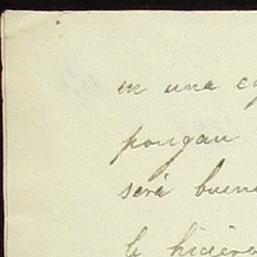 en una
pongan
será buen
le hicier